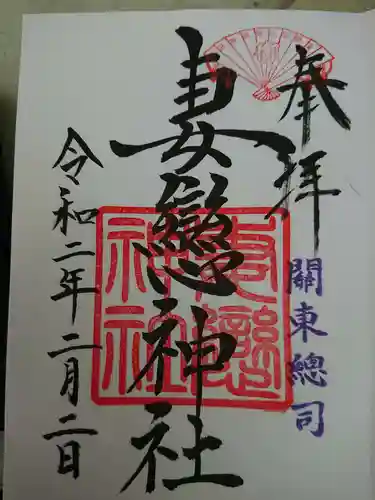 奉拝
關東總司
妻戀神社
妻戀神社
令和二年二月二日